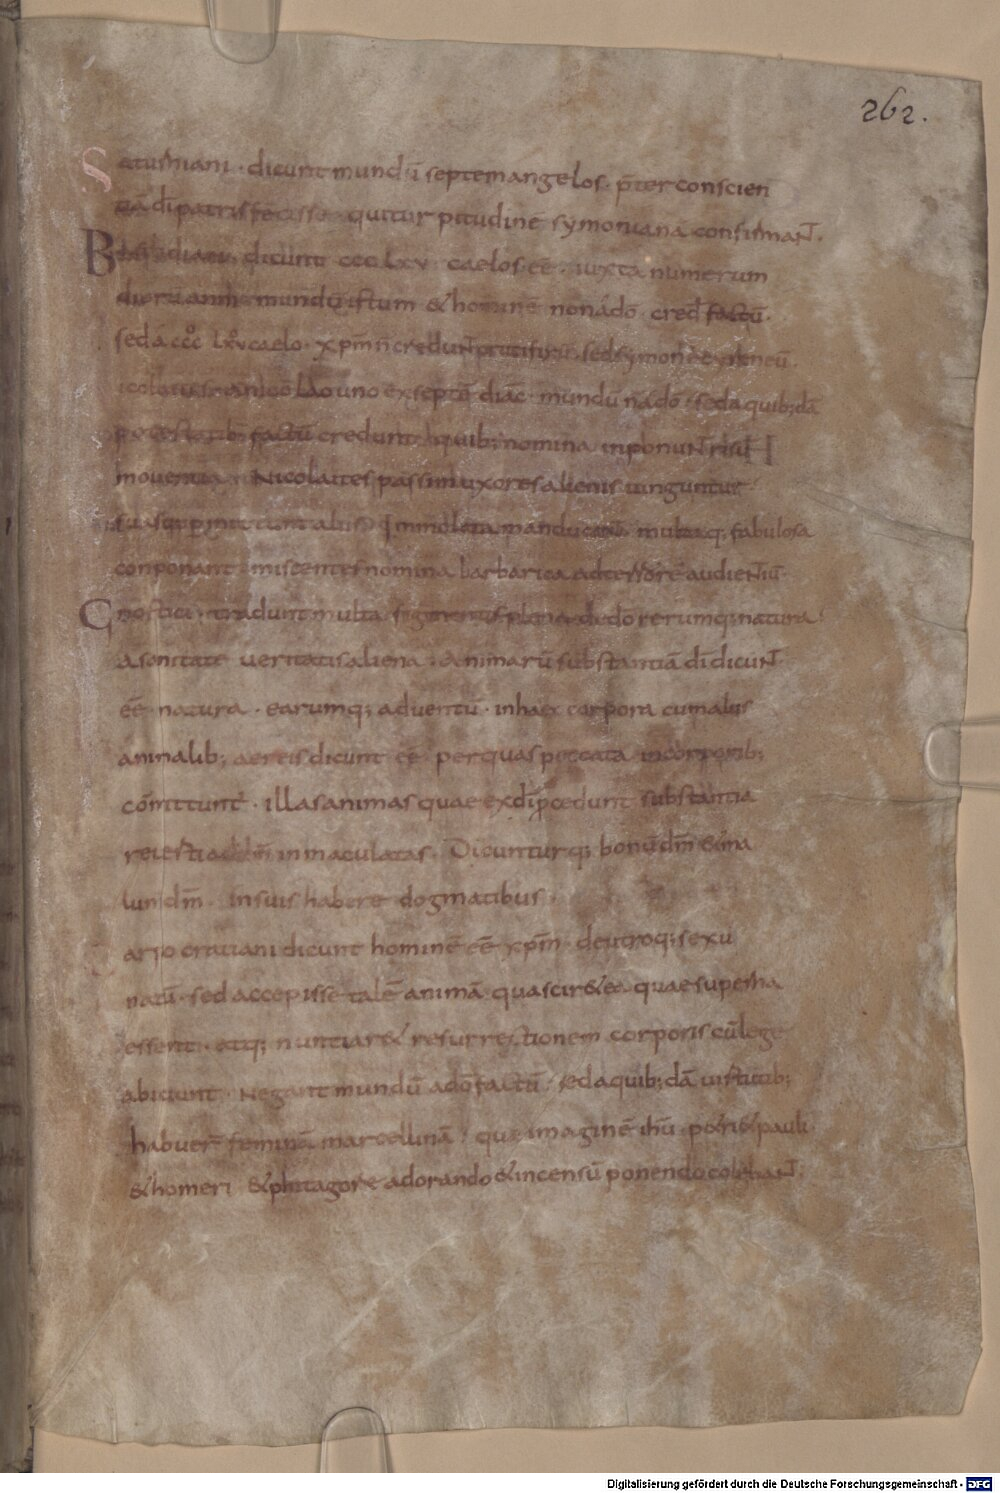 262.
Saturniani · dicunt mundū septem angelos · p̄ter conscien
tiā dī patris fecisse quitur pitudine symoniana confirmaNT.
Basilidiani dicunt ccc lxv caelos eē · iuxta numerum
dierū anni mundū iſtum & hominē non a dō · cred̄ factū ·
sed a ccc lxv caelo · xp̄m ñ credunt crucifixū · sed symonē cyreneū ·
icolaitis a nicolao uno ex septē diac̄ · mundū ñ a dō · sed a quib;dā
potestatib; factū credunt quib; nomina inponuNT risū
mouentia Nicolaites passim uxores alienis iunguntur ·
suasq; permittunt aliis · immolata manducant multaq; fabulosa
conponunt · miscentes nomina barbarica ad terrorē audieNTiū ·
Gnostici · tradunt multa figmentis plena de dō rerumq; natura
a sanitate ueritatis aliena · animarū substantiā dī dicuNT
eē natura · earumq; aduentū · in haec corpora cum aliis
animalib; aereis dicunt eē per quas peccata in corporib;
cōmittunt · illas animas quae ex dī p̄cedunt substantia
inmaculatas · Dicunturq; bonū dm̄ & ma
lum dm̄ · in suis habere dogmatibus ·
arpo cratiani dicunt hominē eē xp̄m · de utroq; sexu
natū · sed accepisse talē animā qua scir& ea quae superna
essent · atq; nuntiar& resurrectionem corporis cū lege
abiciunt · Negant mundū a dō factū · sed a quib;dā uirtutib;
habuer̄ feminā marcellinā · que imaginē ih̄u · petri & pauli
& homeri & phitagore adorando & incensū ponendo colebaNT.
Digitalisierung gefördert durch die Deutsche Forschungsgemeinschaft - DFG